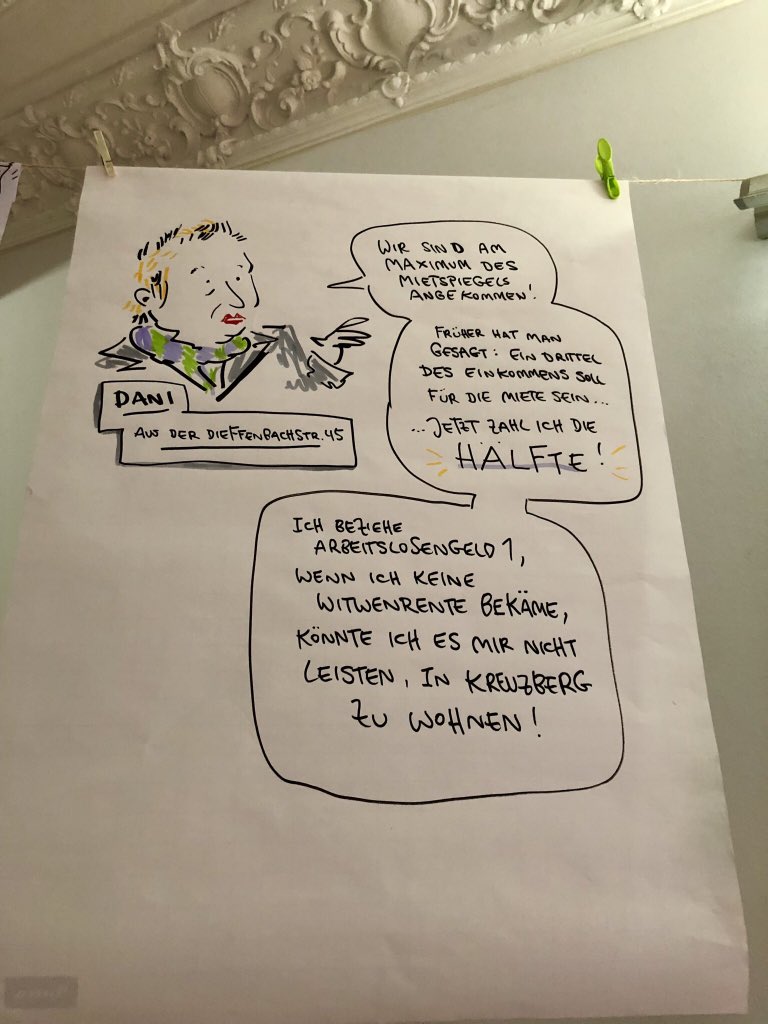 WIR SIND AM
MAXIMUM DES
MIETSPIEGELS
ANGEKOMMEN!
FRÜHER HAT MAN
GESAGT: EIN DRITTEL
DES EINKOMMENS SOLL
FÜR DIE MIETE SEIN...
...JETZT ZAHL ICH DIE
HÄLFTE!
DANI
AUS DER DIEFFENBACHSTR. 45
ICH BEZIEHE
ARBEITSLOSENGELD 1,
WENN ICH KEINE
WITWENRENTE BEKÄME,
KÖNNTE ICH ES MIR NICHT
LEISTEN, IN KREUZBERG
ZU WOHNEN!